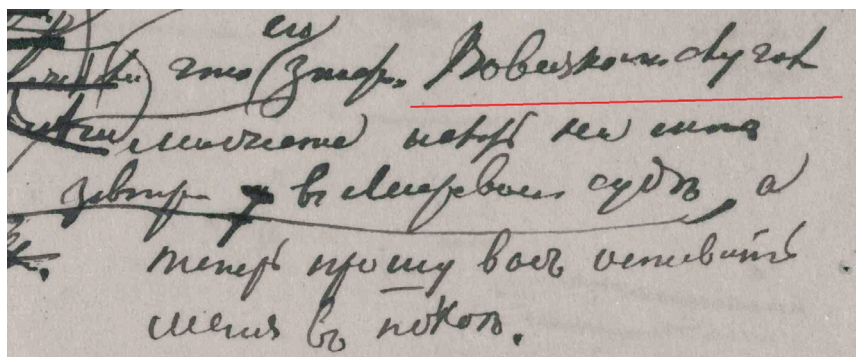 его
что (знар. Во всяком случаѣ
можете искать на мнѣ
завтра въ Мировомъ судѣ, а
теперь прошу васъ оставить
меня въ покоѣ.